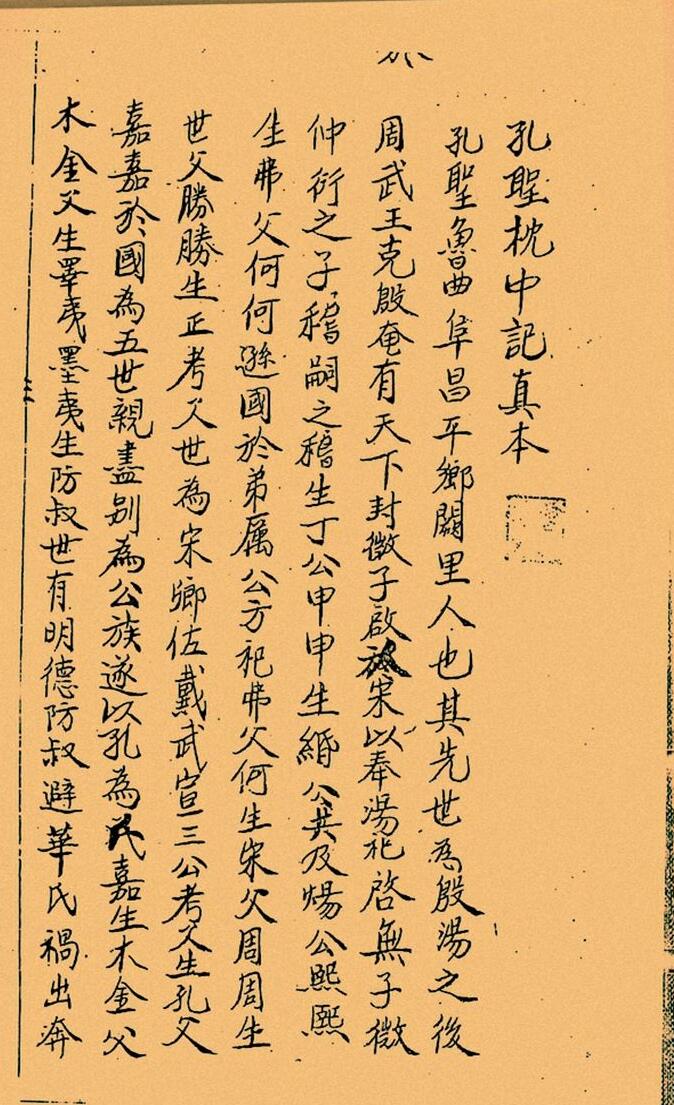 孔聖枕中記真本
孔聖魯曲阜昌平鄉闕里人也其先世為殷湯之後
周武王克殷奄有天下封微子啟於宋以奉湯祀啓無子微
仲衍之子稽嗣之稽生丁公申申生緡公共及煬公熙熙
生弗父何何遜國於弟厲公方祀弗父何生宋父周周生
世父勝勝生正考父世為宋卿佐戴武宣三公考父生孔父
嘉嘉於國為五世親盡别為公族遂以孔為氏嘉生木金父
木金父生睪夷墨夷生防叔世有明德防叔避華氏禍出奔